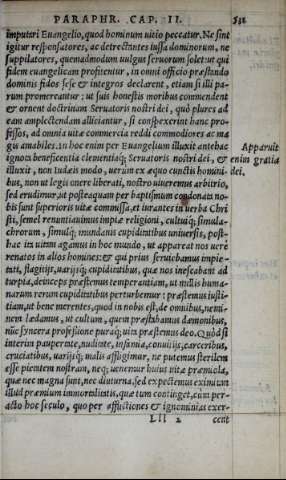 PARAPHR. CAP. II. 531
imputari Euangelio, quod hominum uitio peccatur. Ne sint
igitur responsatores, ac detrectantes iussa dominorum, ne
suppilatores, quemadmodum uulgus seruorum solet: ut qui
fidem euangelicam profitentur, in omni officio præstando
dominis fidos sese & integros declarent, etiam si illi pa-
rum promerentur: ut suis honestis moribus commendent
& ornent doctrinam Seruatoris nostri dei, quò plures ad
eam amplectendam alliciantur, si conspexerint hanc pro-
fessos, ad omnia uitæ commercia reddi commodiores ac ma-
gis amabiles. In hoc enim per Euangelium illuxit antehac Apparuit
ignota beneficentia clementiaq; Seruatoris nostri dei, & enim gratia
illuxit, non Iudæis modo, uerum ex æquo cunctis homini- dei.
bus, non ut legis onere liberati, nostro uiueremus arbitrio,
sed erudimur, ut posteaquam per baptismum condonata no-
bis sunt superioris uitæ commissa, et iurantes in uerba Chri
sti, semel renuntiauimus impiæ religioni, cultuiq; simula-
chrorum, simulq; mundanis cupiditatibus uniuersis, post-
hac ita uitam agamus in hoc mundo, ut appareat nos uere
renatos in alios homines: & qui prius seruiebamus impie-
tati, flagitijs, uarijsq; cupiditatibus, quæ nos inescabant ad
turpia, deinceps præstemus temperantiam, ut nullis huma-
narum rerum cupiditatibus perturbemur: præstemus iusti-
tiam, ut bene merentes, quod in nobis est, de omnibus, nemi-
nem lædamus, ut cultum, quem præstabamus dæmonibus,
nūc syncera professione paraq; uita præstemus deo. Quòd si
interim paupertate, nuditate, infamia, conuitijs, carceribus,
cruciatibus, uarijsq; malis affligimur, ne putemus sterilem
esse pietatem nostram, neq; uenemur huius uitæ præmiola,
quæ nec magna sunt, nec diuturna, sed expectemus eximium
illud præmium immortalitatis, quæ tum continget, cum per-
acto hoc seculo, quo per afflictiones & ignominias exer-
LII 2 cent